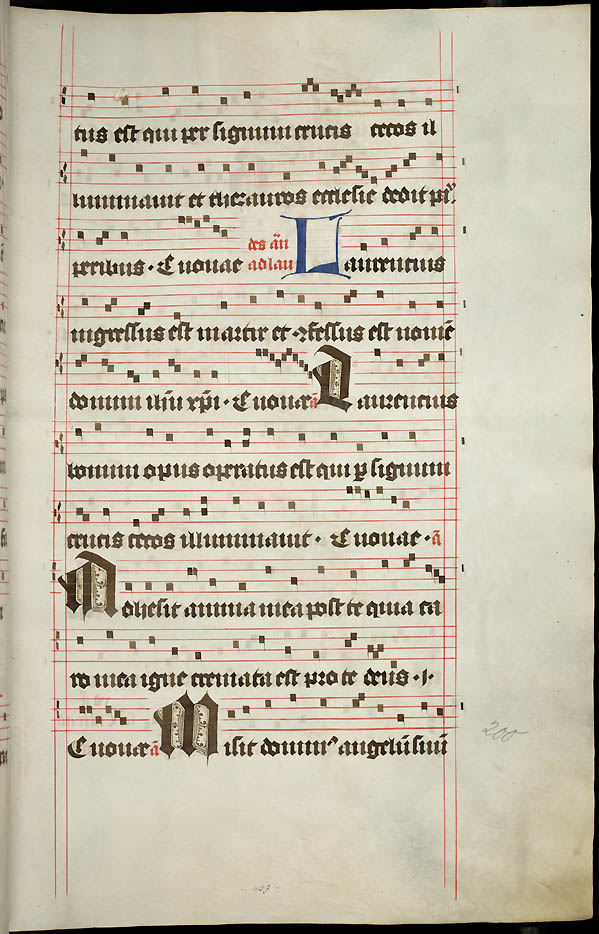 tus est qui per signum crucis cecos il
luminavit et thezauros ecclesie dedit
des añ
peribus · Euouae ad lau Laurencius
ingressus est martir et ꝯfessus est nomē
domini ihu xpi · Euouae ā Laurencius
bonum opus operatus est qui ꝑ signum
crucis cecos illuminavit · Euouae · ā
Adhesit anima mea post te quia ca
ro mea igne cremata est pro te deus ·
Euouae ā Misit dominꝰ angelū suū
200